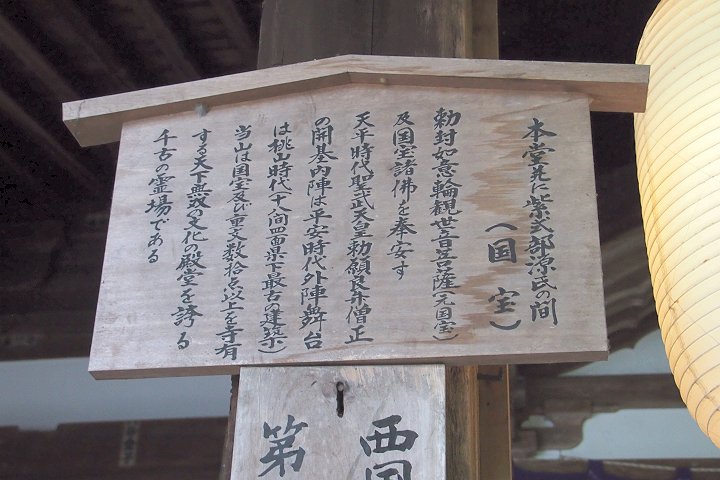 本堂並に紫式部源氏の間
（国宝）
勅封如意輪観世音菩薩(元国宝)
及国宝諸佛を奉安す
天平時代聖武天皇勅願良弁僧正
の開基内陣は平安時代外陣舞台
は桃山時代(十八間四面県下最古の建築)
当山は国宝及び重文数拾点以上を寺有
する天下無双の文化の殿堂を誇る
千古の霊場である
西国
第